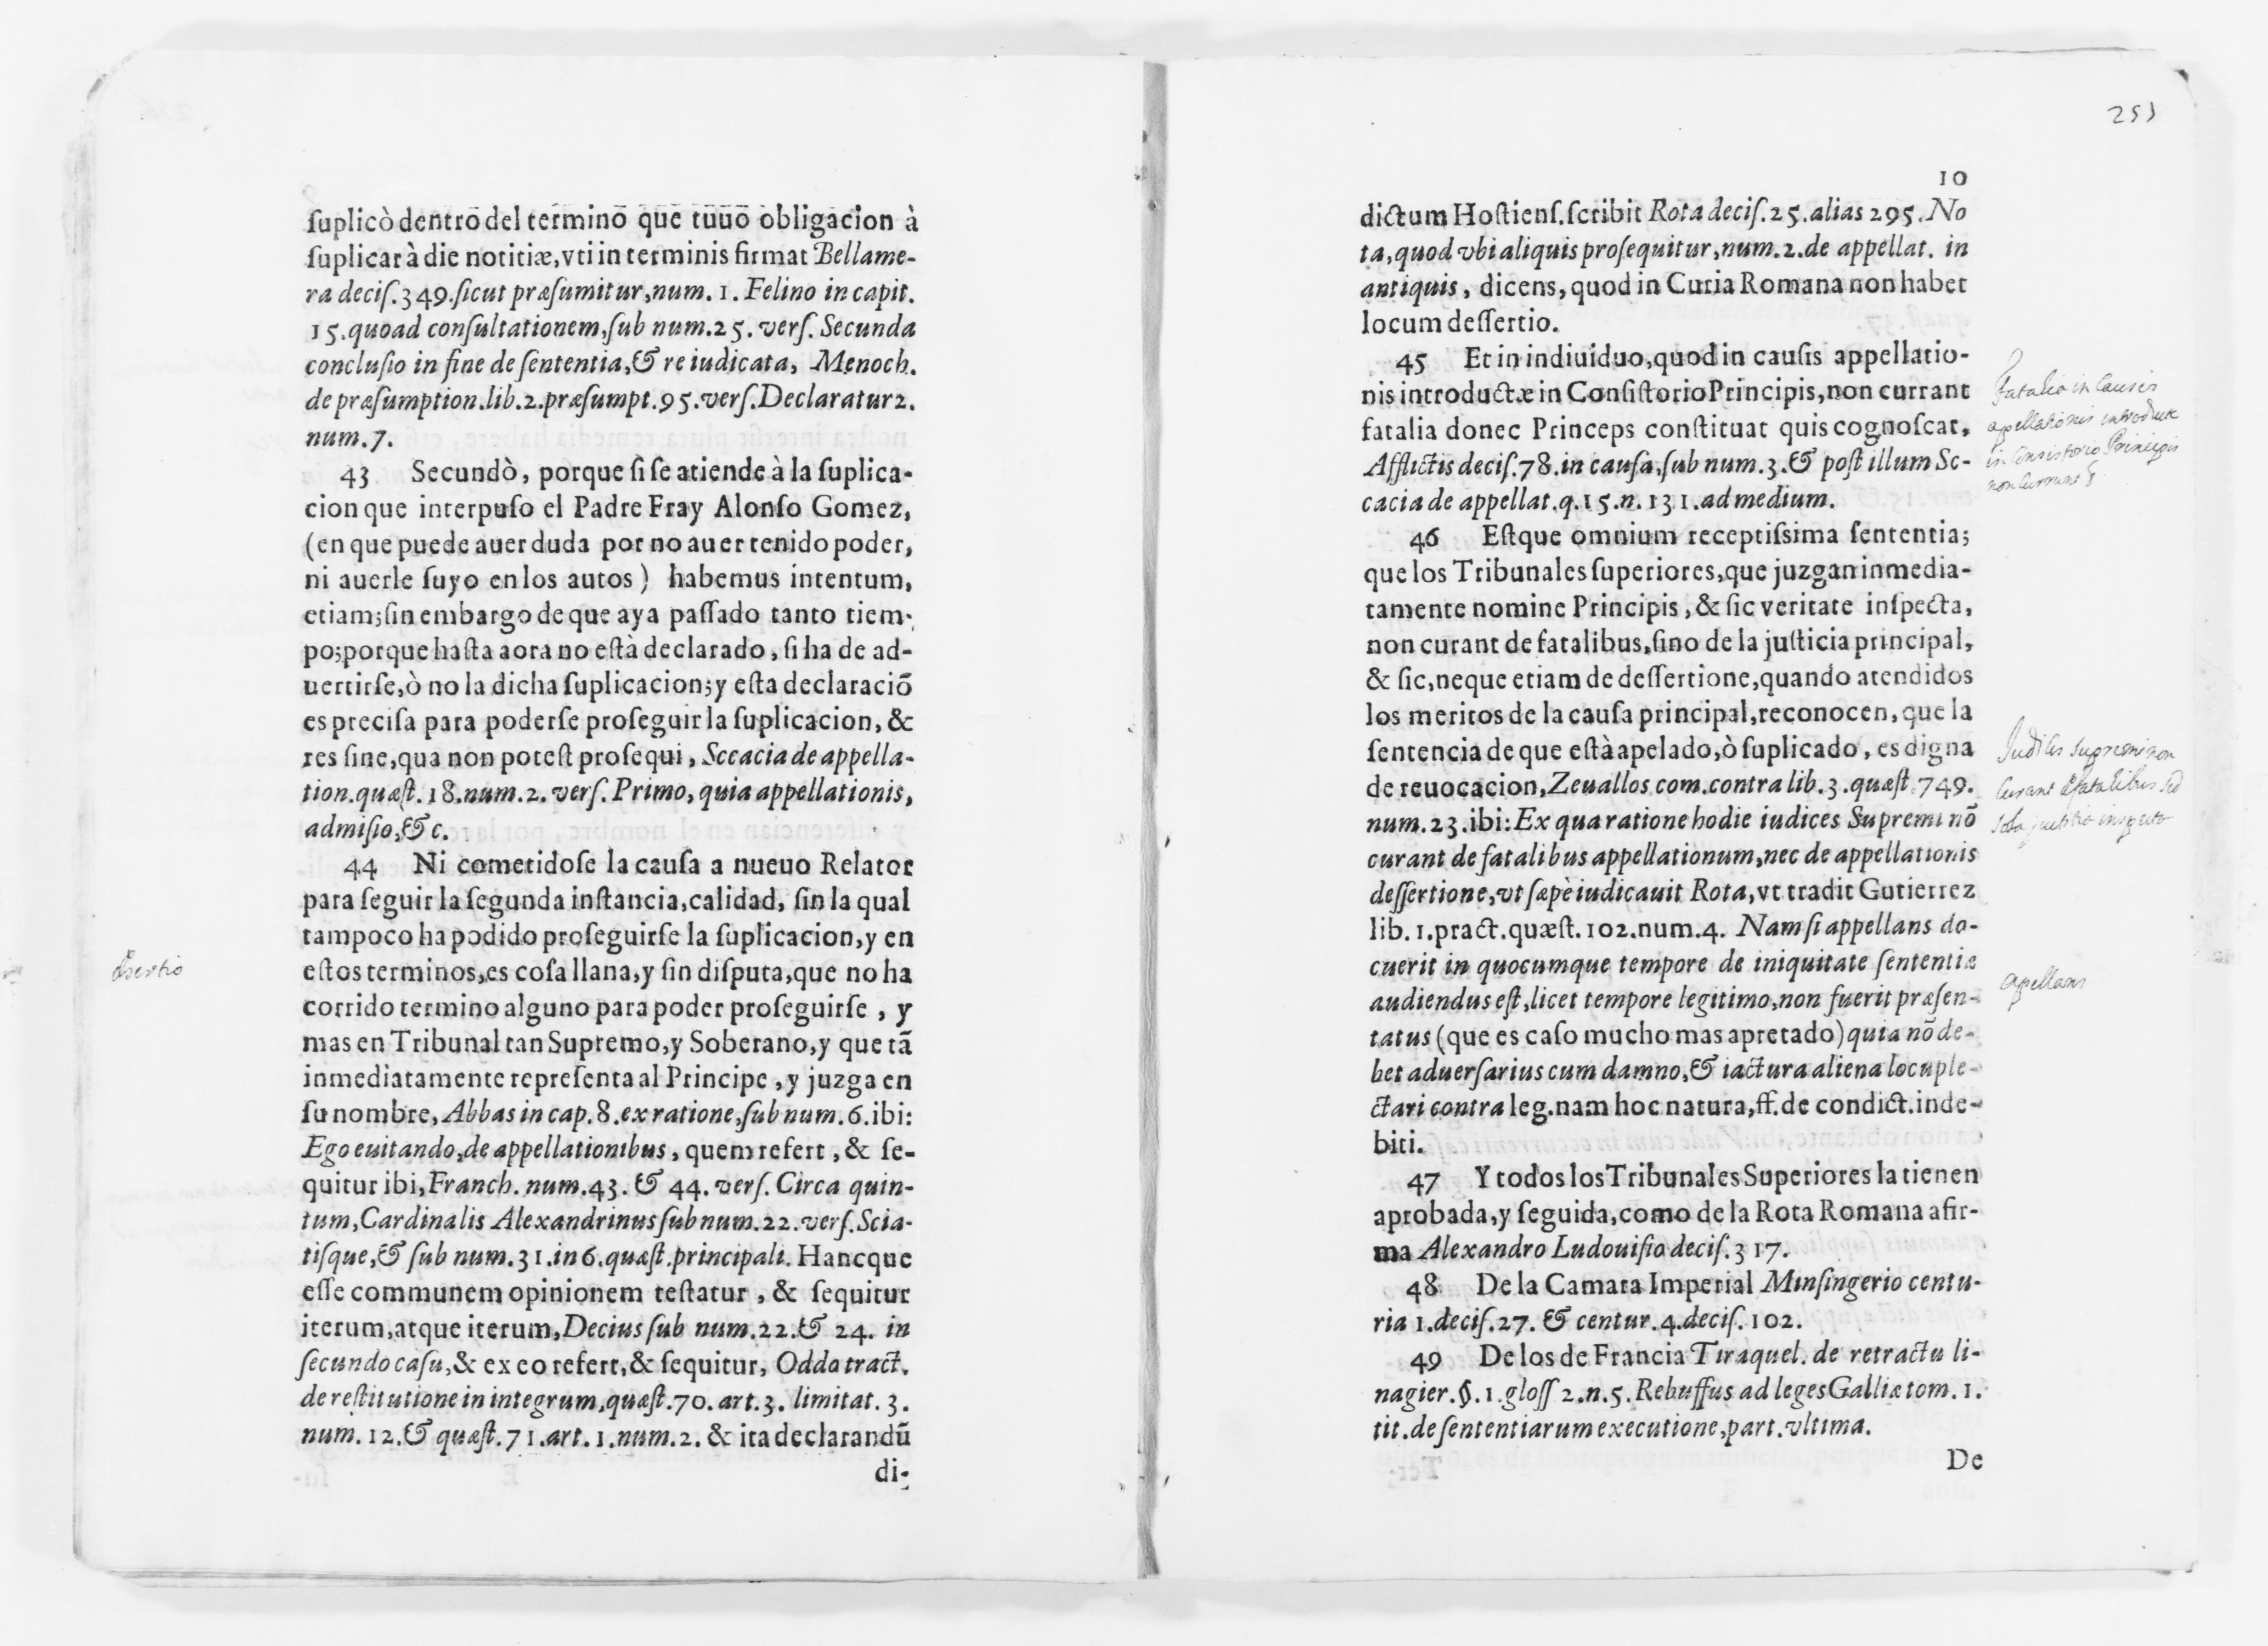 ſuplicò dentro del termino que tuuo obligacion à
ſuplicar à die notitiæ, vti in terminis firmat Bellame-
ra deciſ. 349. ſicut præſumitur, num. 1. Felino in capit.
15. quoad conſultationem, ſub num. 25. verſ. Secunda
concluſio in fine de ſententia, & re iudicata, Menoch.
de præſumption. lib. 2. præſumpt. 95. verſ. Declaratur 2.
num. 7.
43 Secundò, porque ſi ſe atiende à la ſuplica-
cion que interpuſo el Padre Fray Alonſo Gomez,
(en que puede auer duda por no auer tenido poder,
ni auerle ſuyo en los autos) habemus intentum,
etiam; ſin embargo de que aya paſſado tanto tiem-
po; porque haſta aora no eſtà declarado, ſi ha de ad-
uertirſe, ò no la dicha ſuplicacion; y eſta declaraciõ
es preciſa para poderſe proſeguir la ſuplicacion, &
res ſine, qua non poteſt proſequi, Sccacia de appella-
tion. quæſt. 18. num. 2. verſ. Primo, quia appellationis,
admiſio, & c.
44 Ni cometidoſe la cauſa a nueuo Relator
para ſeguir la ſegunda inſtancia, calidad, ſin la qual
tampoco ha podido proſeguirſe la ſuplicacion, y en
eſtos terminos, es coſa llana, y ſin diſputa, que no ha
corrido termino alguno para poder proſeguirſe, y
mas en Tribunal tan Supremo, y Soberano, y que tã
inmediatamente repreſenta al Principe, y juzga en
ſu nombre, Abbas in cap. 8. ex ratione, ſub num. 6. ibi:
Ego euitando, de appellationibus, quem refert, & ſe-
quitur ibi, Franch. num. 43. & 44. verſ. Circa quin-
tum, Cardinalis Alexandrinus ſub num. 22. verſ. Scia-
tiſque, & ſub num. 31. in 6. quæſt. principali. Hancque
eſſe communem opinionem teſtatur, & ſequitur
iterum, atque iterum, Decius ſub num. 22. & 24. in
ſecundo caſu, & ex eo refert, & ſequitur, Oddo tract.
de reſtitutione in integrum, quæſt. 70. art. 3. limitat. 3.
num. 12. & quæſt. 71. art. 1. num. 2. & ita declarandũ
di-
251
10
dictum Hoſtienſ. ſcribit Rota deciſ. 25. alias 295. No
ta, quod vbi aliquis proſequitur, num. 2. de appellat. in
antiquis, dicens, quod in Curia Romana non habet
locum deſſertio.
45 Et in indiuiduo, quod in cauſis appellatio-
nis introductæ in Conſiſtorio Principis, non currant
fatalia donec Princeps conſtituat quis cognoſcat,
Afflictis deciſ. 78. in cauſa, ſub num. 3. & poſt illum Sc-
cacia de appellat. q. 15. n. 131. ad medium.
Fatalia in causis
apellationis introducte
in Consistorio Principis
non Currunt
46 Eſtque omnium receptiſsima ſententia;
que los Tribunales ſuperiores, que juzgan inmedia-
tamente nomine Principis, & ſic veritate inſpecta,
non curant de fatalibus, ſino de la juſticia principal,
& ſic, neque etiam de deſſertione, quando atendidos
los meritos de la cauſa principal, reconocen, que la
ſentencia de que eſtà apelado, ò ſuplicado, es digna
de reuocacion, Zeuallos com. contra lib. 3. quæſt 749.
num. 23. ibi: Ex qua ratione hodie iudices Supremi nõ
curant de fatalibus appellationum, nec de appellationis
deſſertione, vt ſæpè iudicauit Rota, vt tradit Gutierrez
lib. 1. pract. quæſt. 102. num. 4. Nam ſi appellans do-
cuerit in quocumque tempore de iniquitate ſententiæ
audiendus eſt, licet tempore legitimo, non fuerit præſen-
tatus (que es caſo mucho mas apretado) quia nõ de-
bet aduerſarius cum damno, & iactura aliena locuple-
ctari contra leg. nam hoc natura, ff. de condict. inde-
biti.
apellans
47 Y todos los Tribunales Superiores la tienen
aprobada, y ſeguida, como de la Rota Romana afir-
ma Alexandro Ludouiſio deciſ. 317.
48 De la Camara Imperial Minſingerio centu-
ria 1. deciſ. 27. & centur. 4. deciſ. 102.
49 De los de Francia Tiraquel. de retractu li-
nagier. §. 1. gloſſ 2. n. 5. Rebuffus ad leges Galliæ tom. 1.
tit. de ſententiarum executione, part. vltima.
De